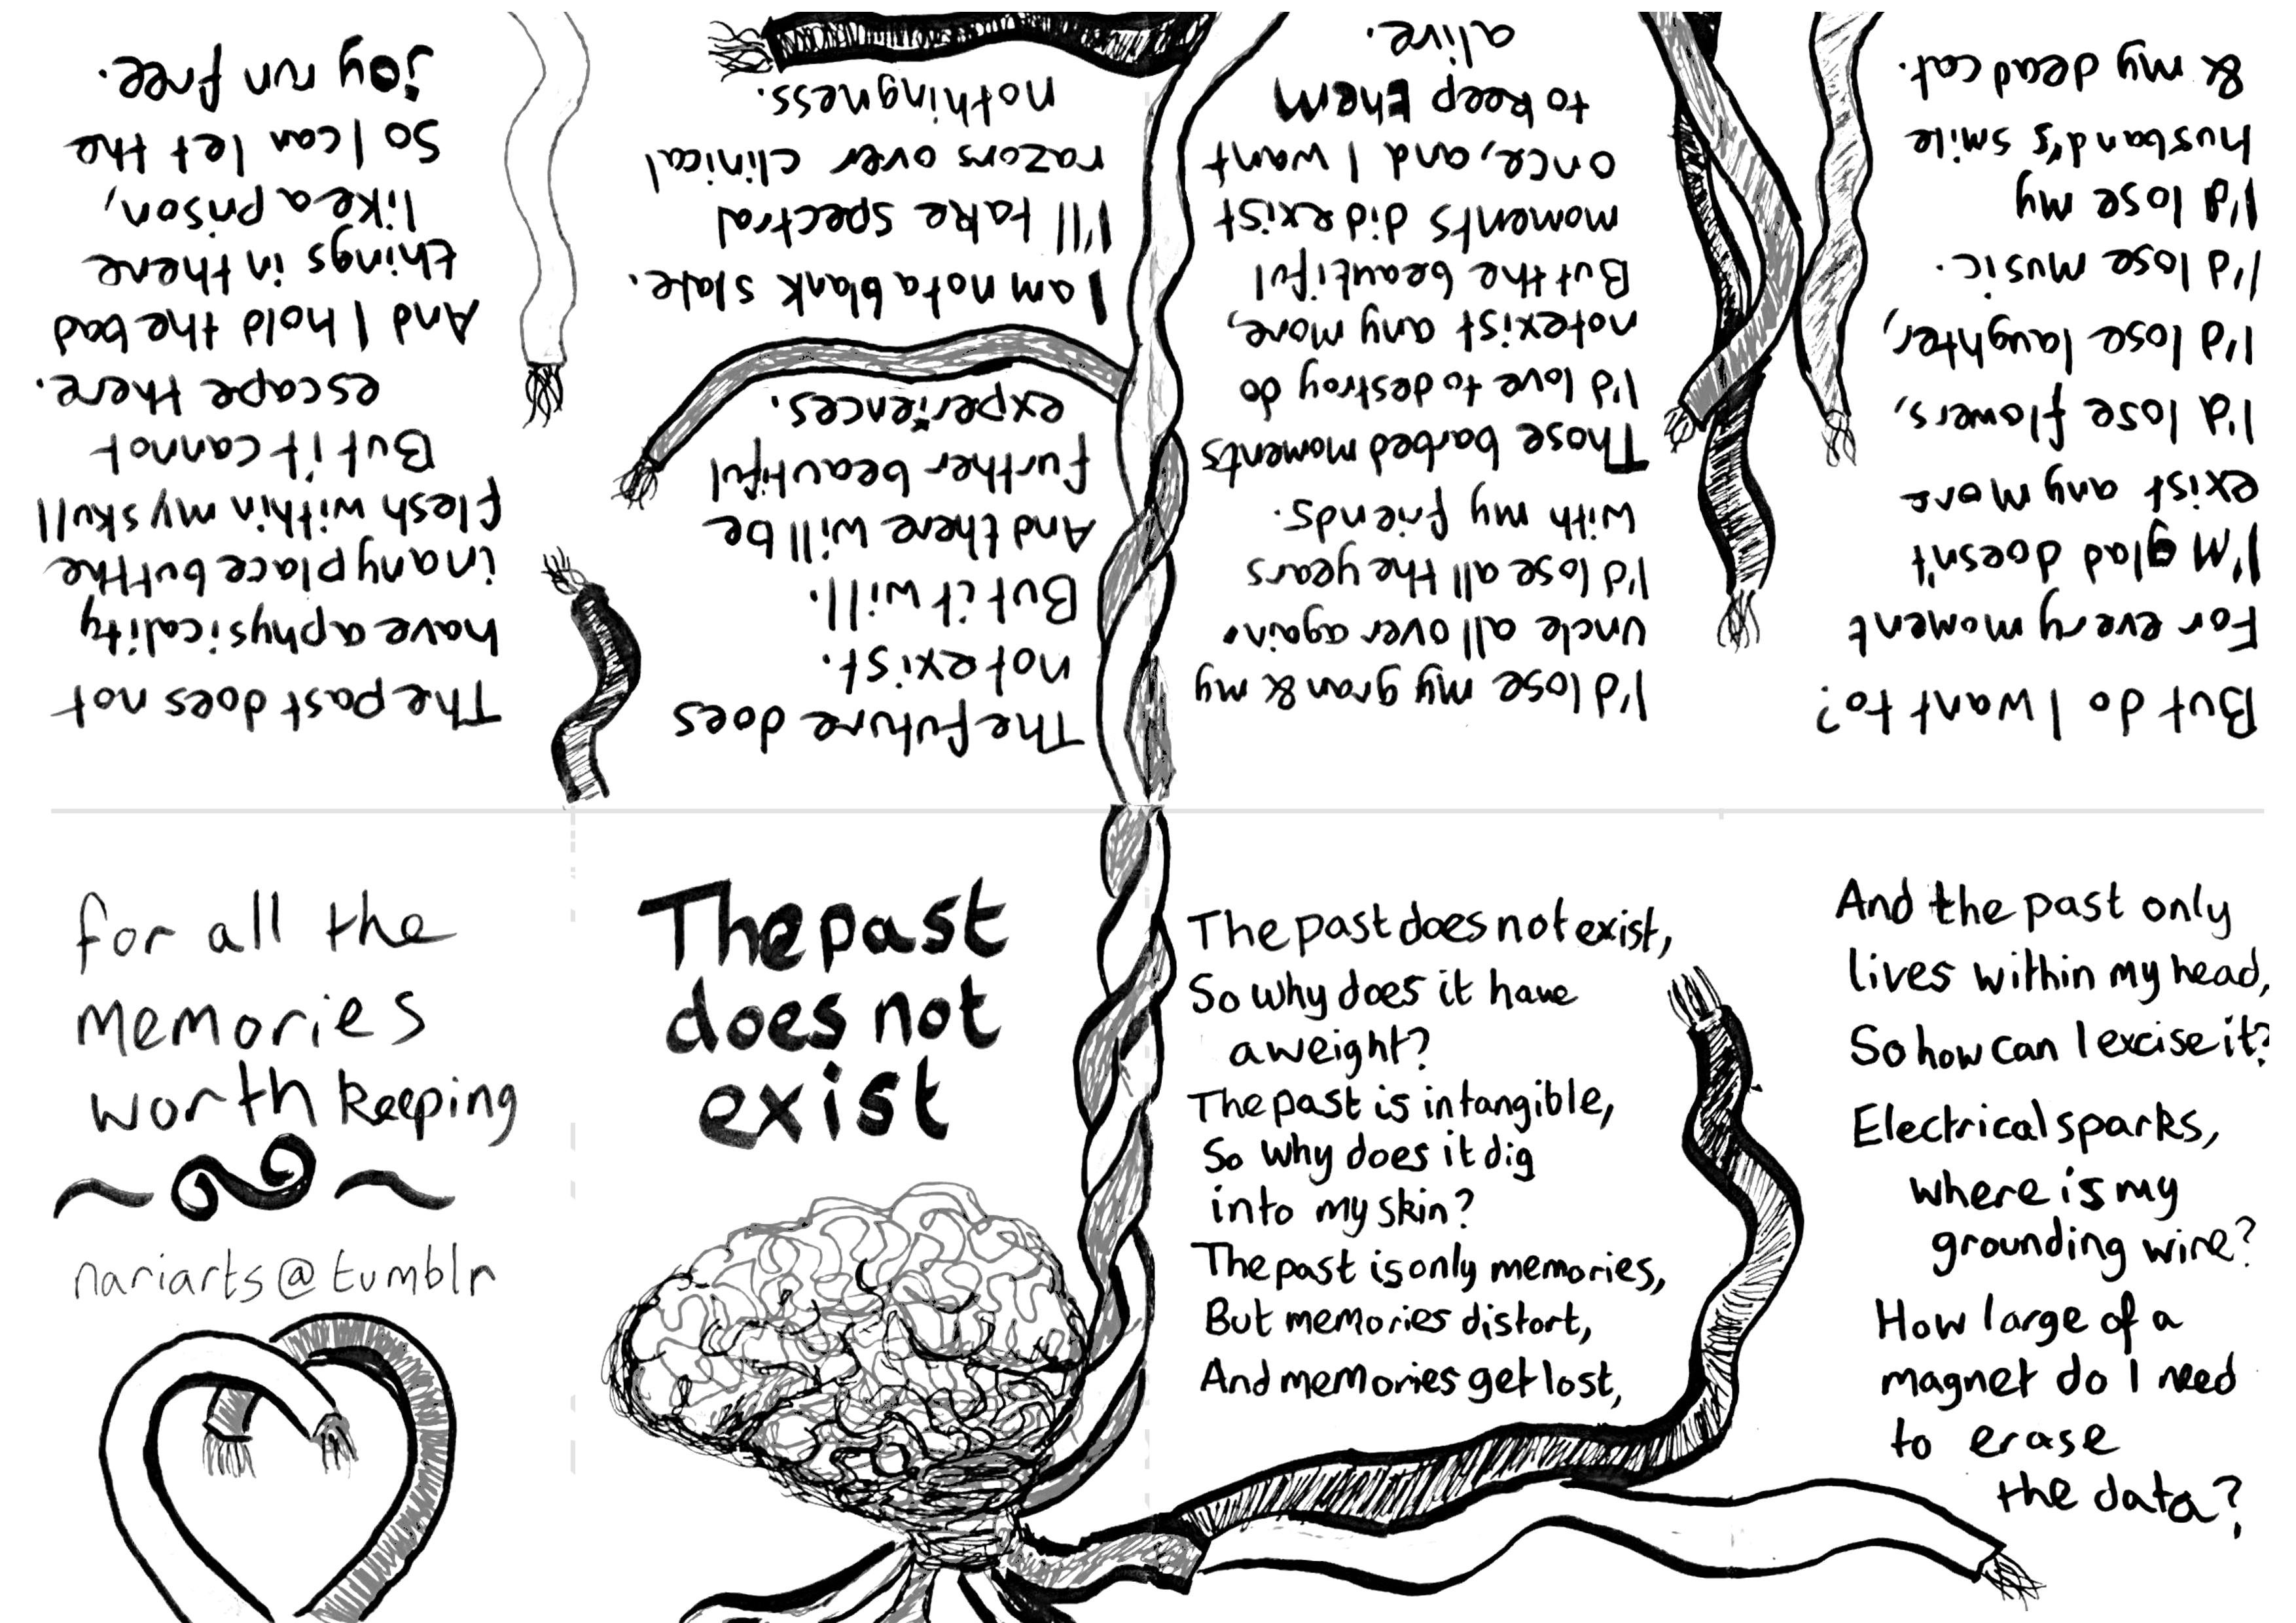 The past
does not
exist
The past does not exist,
So why does it have
a weight?
The past is intangible,
So why does it dig
into my skin?
The past is only memories,
But memories distort,
And memories get lost,
And the past only
lives within my head,
So how can I excise it?
Electrical sparks,
where is my
grounding wire?
How large of a
magnet do I need
to erase
the data?
But do I want to?
For every moment
I'm glad doesn't
exist any more
I'd lose flowers,
I'd lose laughter,
I'd lose music.
I'd lose my
husband's smile
& my dead cat.
I'd lose my gran & my
uncle all over again.
I'd lose all the years
with my friends.
Those barbed moments
I'd love to destroy do
not exist any more,
But the beautiful
moments did exist
once, and I want
to keep them
alive.
The future does
not exist.
But it will.
And there will be
further beautiful
experiences.
I am not a blank slate.
I'll take spectral
razors over clinical
nothingness.
The past does not
have a physicality
in any place but the
flesh within my skull
But it cannot
escape there.
And I hold the bad
things in there
like a prison,
So I can let the
joy run free.
for all the
memories
worth keeping
nariarts@tumblr